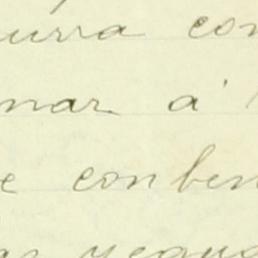 urra con
nar á
e conben